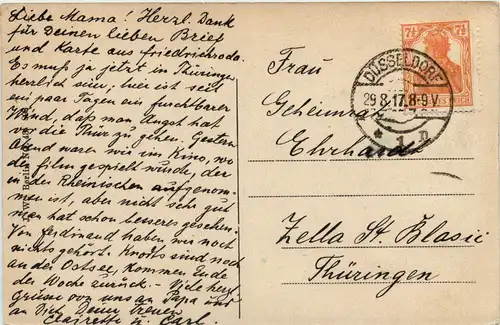 Liebe Mama! Herzl. Dank
für Deinen lieben Brief
und Karte aus Friedrichsroda.
Es muß ja jetzt in Thüringen
herrlich sein, hier ist seit
ein paar Tagen ein furchtbarer
Wind, daß man Angst hat
vor die Thür zu gehen. Gestern
Abend waren wir im Kino, wo
der Film gespielt wurde, der
in der Rheinischen aufgenom-
men ist, aber nicht sehr gut
man hat schon besseres gesehen.
Von Ferdinand haben wir noch
nichts gehört. Knotts sind noch
an der Ostsee, kommen Ende
der Woche zurück. - Viele herzl.
Grüsse von uns an Papa und
an Dich Deine treuen
Clairette u. Carl.
Frau
Geheimrat
Ehrhardt
Zella St. Blasii
Thüringen
DÜSSELDORF
29.8.17.8-9V.
* 1 n
7½ 7½